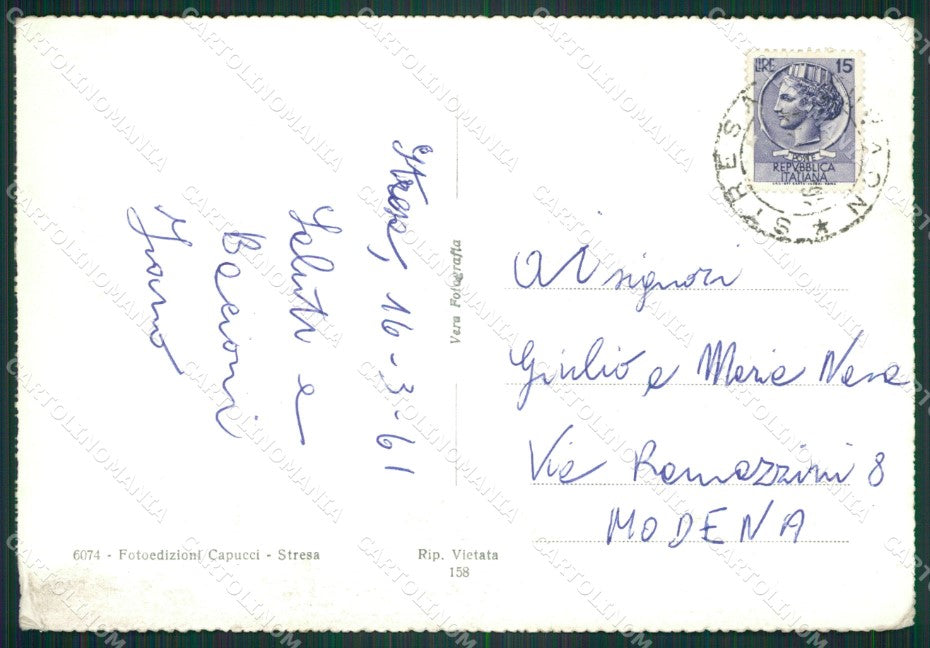 Stresa, 16-3-61
Saluti e
Bacioni
LIRE 15
POSTE
REPVBBLICA
ITALIANA
STRESA
Al signori
Giulio e Maria Nava
Via Ramazzini 8
MODENA
Vera Fotografia
6074 - Fotoedizioni Capucci - Stresa
Rip. Vietata
158
CARTOLINOMANIA